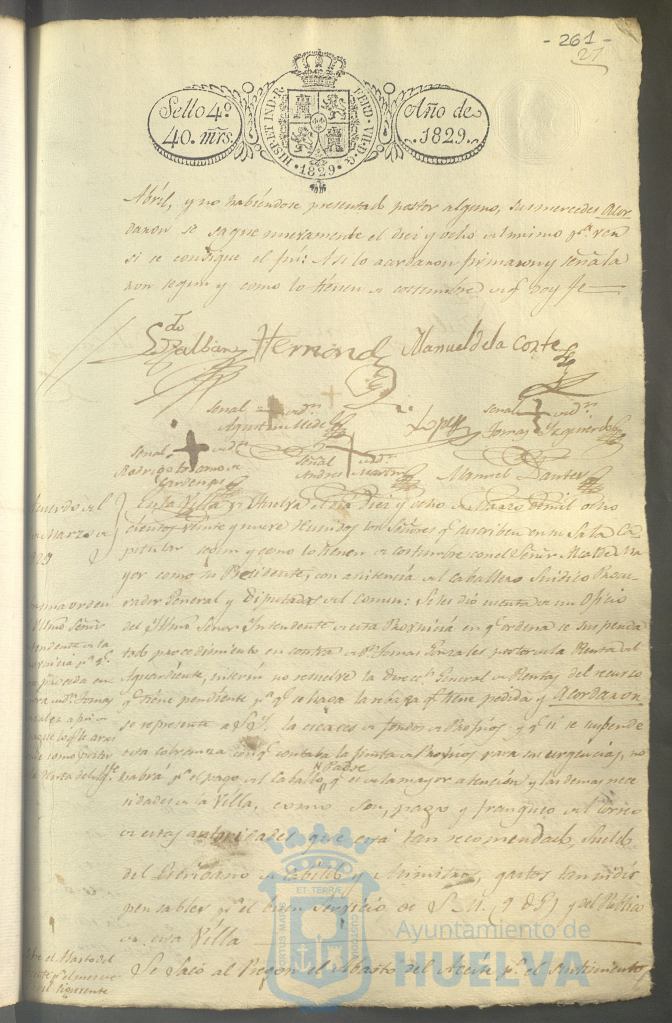 - 261 -
27
Sello 4º
40. mrs.
HISP. ET IND. R. FERD. VII. D. G.
1829
Año de
1829.
Abril, y no habiéndose presentado postor alguno, sus mercedes Acor
daron se saque nuevamente el diez y ocho del mismo pª ver
si se consigue el fin: Asi lo acordaron firmaron y señala
ron segun y como lo tienen de costumbre de q doy fe
Hernand Manuel de la Corte
señal de
señal de
Agustin
Lopez
Tomas Izquierdo
señal de
señal de
Rodrigo
Andres Martin
Manuel Santos
En la Villa de Huelva el dia Diez y ocho de Marzo de mil ocho
cientos veinte y nueve reunidos los Señores q suscriben en su Sala Ca
pitular segun y como lo tienen de costumbre con el Señor Alcalde Ma
yor como su Presidente, con asistencia del Caballero Sindico Procu
rador General y Diputados del comun: Se les dió cuenta de un Oficio
del Yllmo Señor Intendente de esta Provincia en q ordena se suspenda
todo procedimiento en contra de Dn Tomas Gonzales postor de la Renta del
Aguardiente, interin no resuelve la Direccn General de Rentas del recurso
q tiene pendiente pª q se haga la rebaja q tiene pedida y Acordaron
se represente a S.Y. la escaces de fondos de Propios y q si se suspende
esta cobranza con q contaba la Junta de Propios para sus urgencias, no
habrá pª el pago del Caballo Padre q es de la mayor atencion y las demas nece
sidades de la Villa, como son, pago y franqueo del correo
de estas autoridades que está tan recomendado, sueldo
del Escribano de Cabildo y Ministros, gastos tan indis
pensables pª el buen servicio de S. M. y del Publico
de esta Villa
Se sacó al Pregon el Abasto del Aceite pª el Surtimiento
Acuerdo del
de Marzo de
1829
orden
Yllmo Señor
Intendente de la
Provincia pª q
proceda en
contra de Dn Tomas
como postor
la Renta del
el Abasto del
Aceite pª el
siguiente
ET TERRÆ
PORTUS MARIS
CUSTODIA
Ayuntamiento de
HUELVA